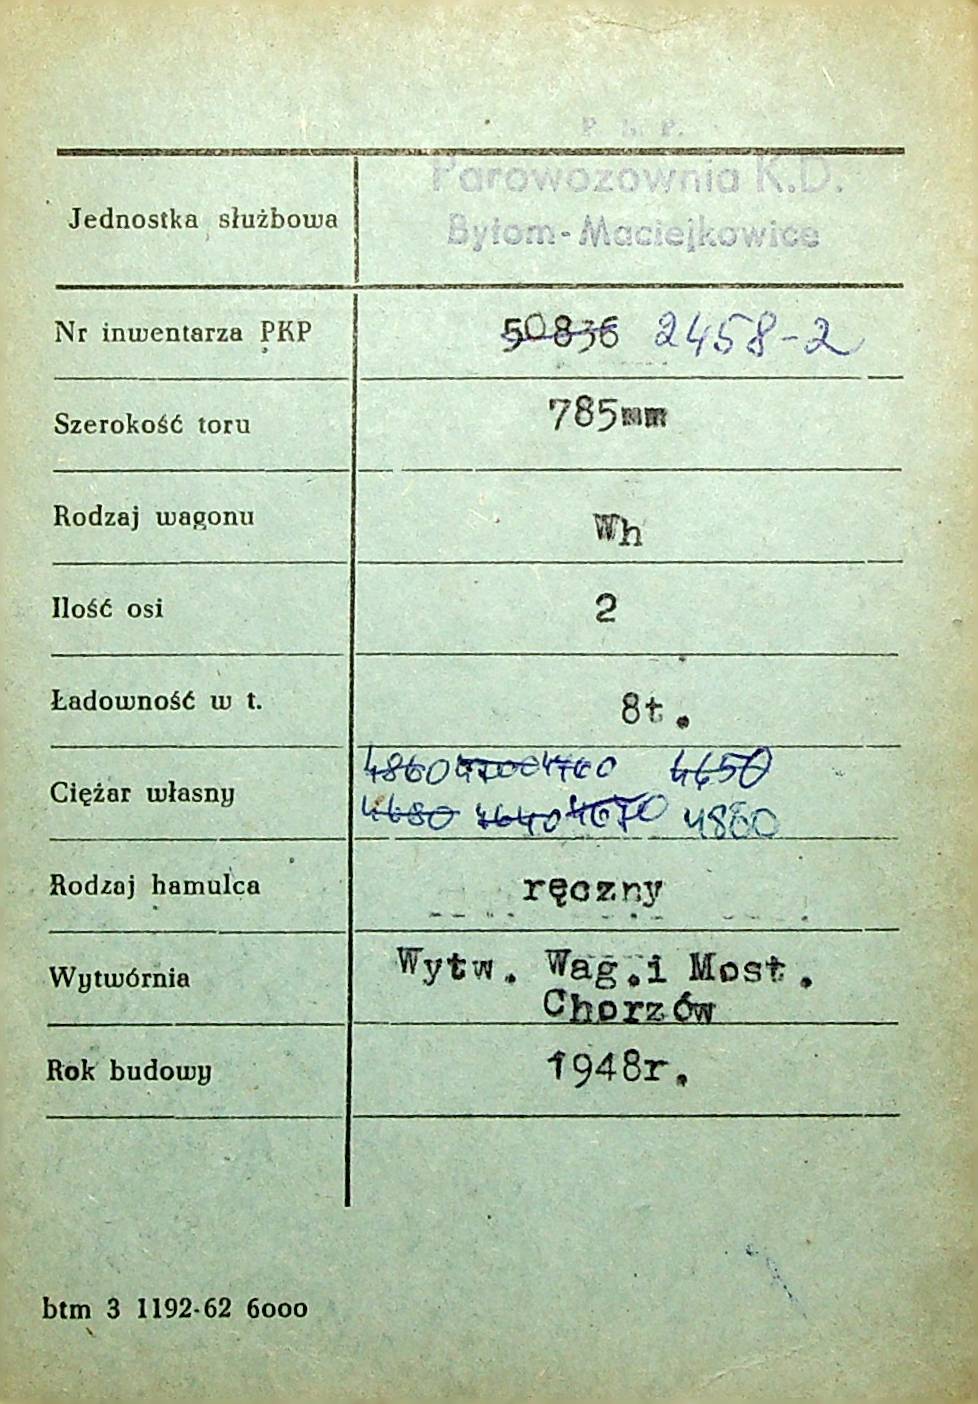 P. K. P.
Parowozownia K.D.
Jednostka służbowa
Bytom-Maciejkowice
Nr inwentarza PKP 50836 2458-2
Szerokość toru 785mm
Rodzaj wagonu Wh
Ilość osi 2
Ładowność w t. 8t.
4860 4700 4760 4650
Ciężar własny
4680 4640 4670 4860
Rodzaj hamulca ręczny
Wytwórnia Wytw. Wag.i Most.
Chorzów
Rok budowy 1948r.
btm 3 1192-62 6000